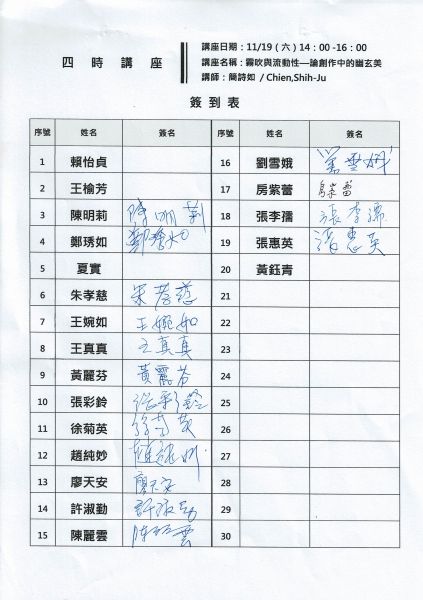 四時講座
講座日期：11/19（六）14：00 -16：00
講座名稱：霧吹與流動性—論創作中的幽玄美
講師：簡詩如 / Chien,Shih-Ju
簽到表
序號 姓名 簽名 序號 姓名 簽名
1 賴怡貞 16 劉雪娥
2 王檜芳 17 房紫蕾 房紫蕾
3 陳明莉 陳明莉 18 張李孺 張李孺
4 鄭琇如 鄭琇如 19 張惠英 張惠英
5 夏實 20 黃鈺青
6 朱孝慈 朱孝慈 21
7 王婉如 王婉如 22
8 王真真 王真真 23
9 黃麗芬 黃麗芬 24
10 張彩鈴 張彩鈴 25
11 徐菊英 徐菊英 26
12 趙純妙 27
13 廖天安 廖天安 28
14 許淑勤 許淑勤 29
15 陳麗雲 陳麗雲 30